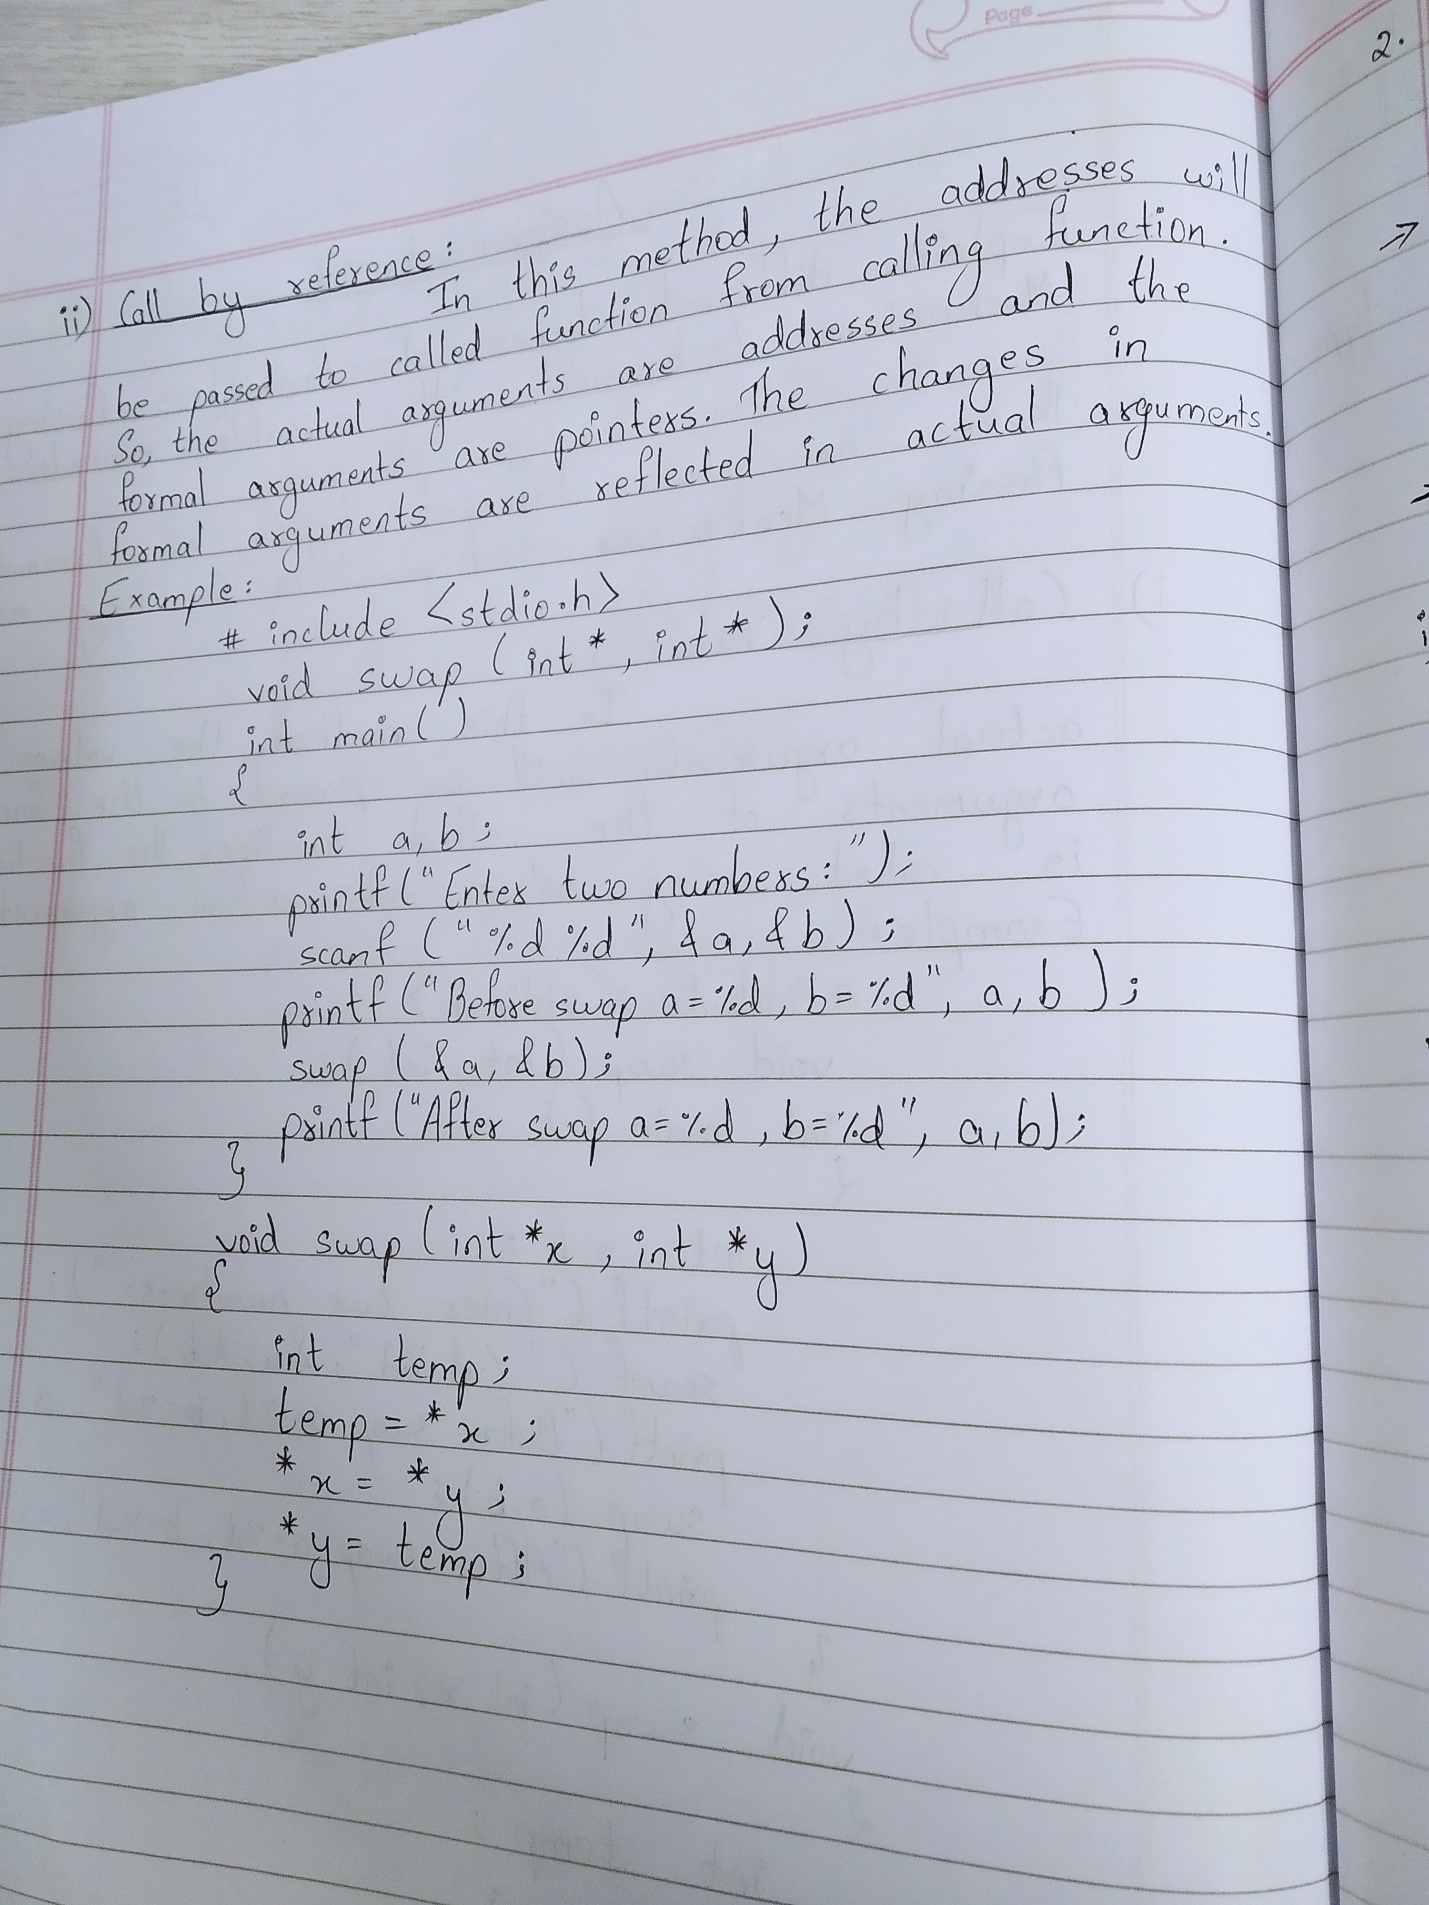 Page
2.
ii) Call by reference:
In this method, the addresses will
be passed to called function from calling function.
So, the actual arguments are addresses and the
formal arguments are pointers. The changes in
formal arguments are reflected in actual arguments.
Example:
# include <stdio.h>
void swap (int *, int *);
int main()
{
int a, b;
printf("Enter two numbers:");
scanf ("%d %d", &a, &b);
printf ("Before swap a=%d, b=%d", a, b);
swap (&a, &b);
printf ("After swap a=%d, b=%d", a, b);
}
void swap (int *x, int *y)
{
int temp;
temp = *x;
*x = *y;
*y = temp;
}